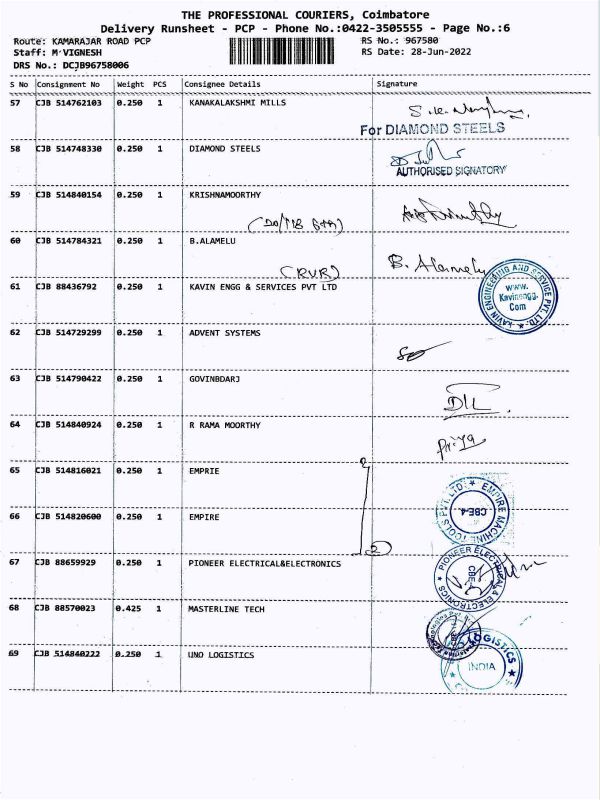 THE PROFESSIONAL COURIERS, Coimbatore
Delivery Runsheet - PCP - Phone No.:0422-3505555 - Page No.:6
Route: KAMARAJAR ROAD PCP RS No.: 967580
Staff: M VIGNESH RS Date: 28-Jun-2022
DRS No.: DCJB96758006
S No Consignment No Weight PCS Consignee Details Signature
57 CJB 514762103 0.250 1 KANAKALAKSHMI MILLS
For DIAMOND STEELS
58 CJB 514748330 0.250 1 DIAMOND STEELS
AUTHORISED SIGNATORY
59 CJB 514840154 0.250 1 KRISHNAMOORTHY
60 CJB 514784321 0.250 1 B.ALAMELU B. Alamelu
(RVR)
61 CJB 88436792 0.250 1 KAVIN ENGG & SERVICES PVT LTD
KAVIN ENGINEERING AND SERVICE PVT. LTD.
www.
Kavinengg.
Com
62 CJB 514729299 0.250 1 ADVENT SYSTEMS
63 CJB 514790422 0.250 1 GOVINBDARJ
64 CJB 514840924 0.250 1 R RAMA MOORTHY
65 CJB 514816021 0.250 1 EMPRIE
EMPIRE MACHINE TOOLS PVT. LTD.
CBE-4
66 CJB 514820600 0.250 1 EMPIRE
2
67 CJB 88659929 0.250 1 PIONEER ELECTRICAL&ELECTRONICS
PIONEER ELECTRICAL & ELECTRONICS
CBE
68 CJB 88570023 0.425 1 MASTERLINE TECH
69 CJB 514840222 0.250 1 UNO LOGISTICS
LOGISTICS
INDIA